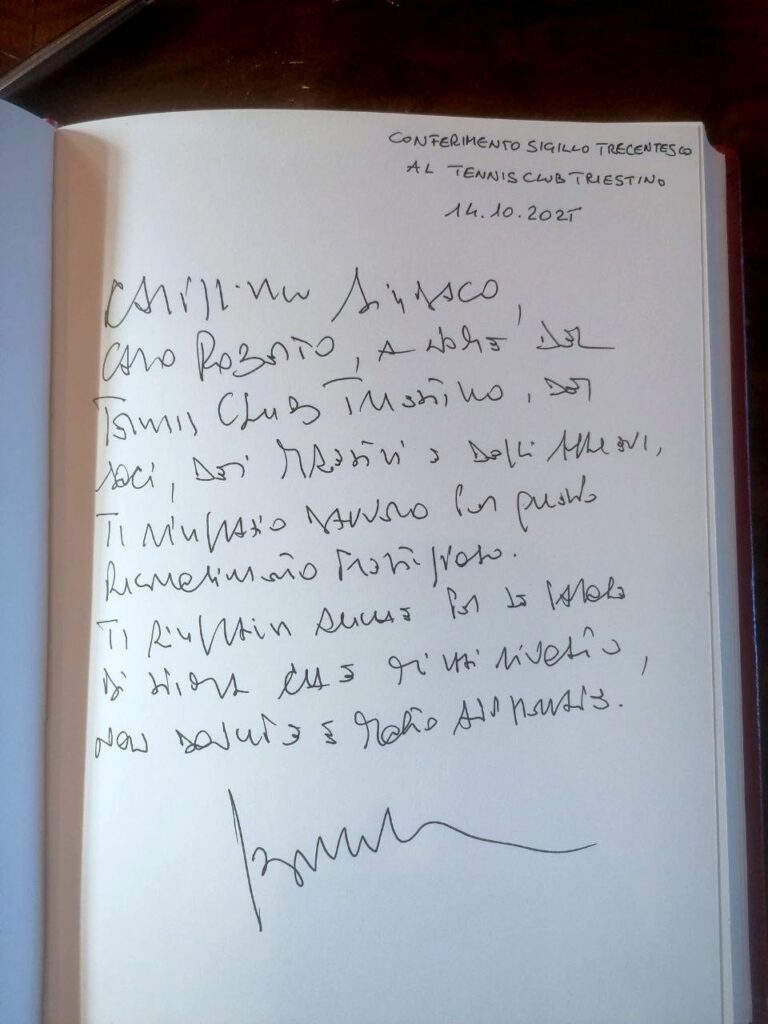 CONFERIMENTO SIGILLO TRECENTESCO
AL TENNIS CLUB TRIESTINO
14.10.2025
Carissimo Sindaco,
Caro Roberto, a nome del
Tennis Club Triestino, dei
soci, dei Maestri e degli allievi,
Ti ringrazio davvero per questo
Riconoscimento Prestigioso.
Ti ringrazio anche per le parole
di stima che mi hai rivolto,
non dovute e molto apprezzate.